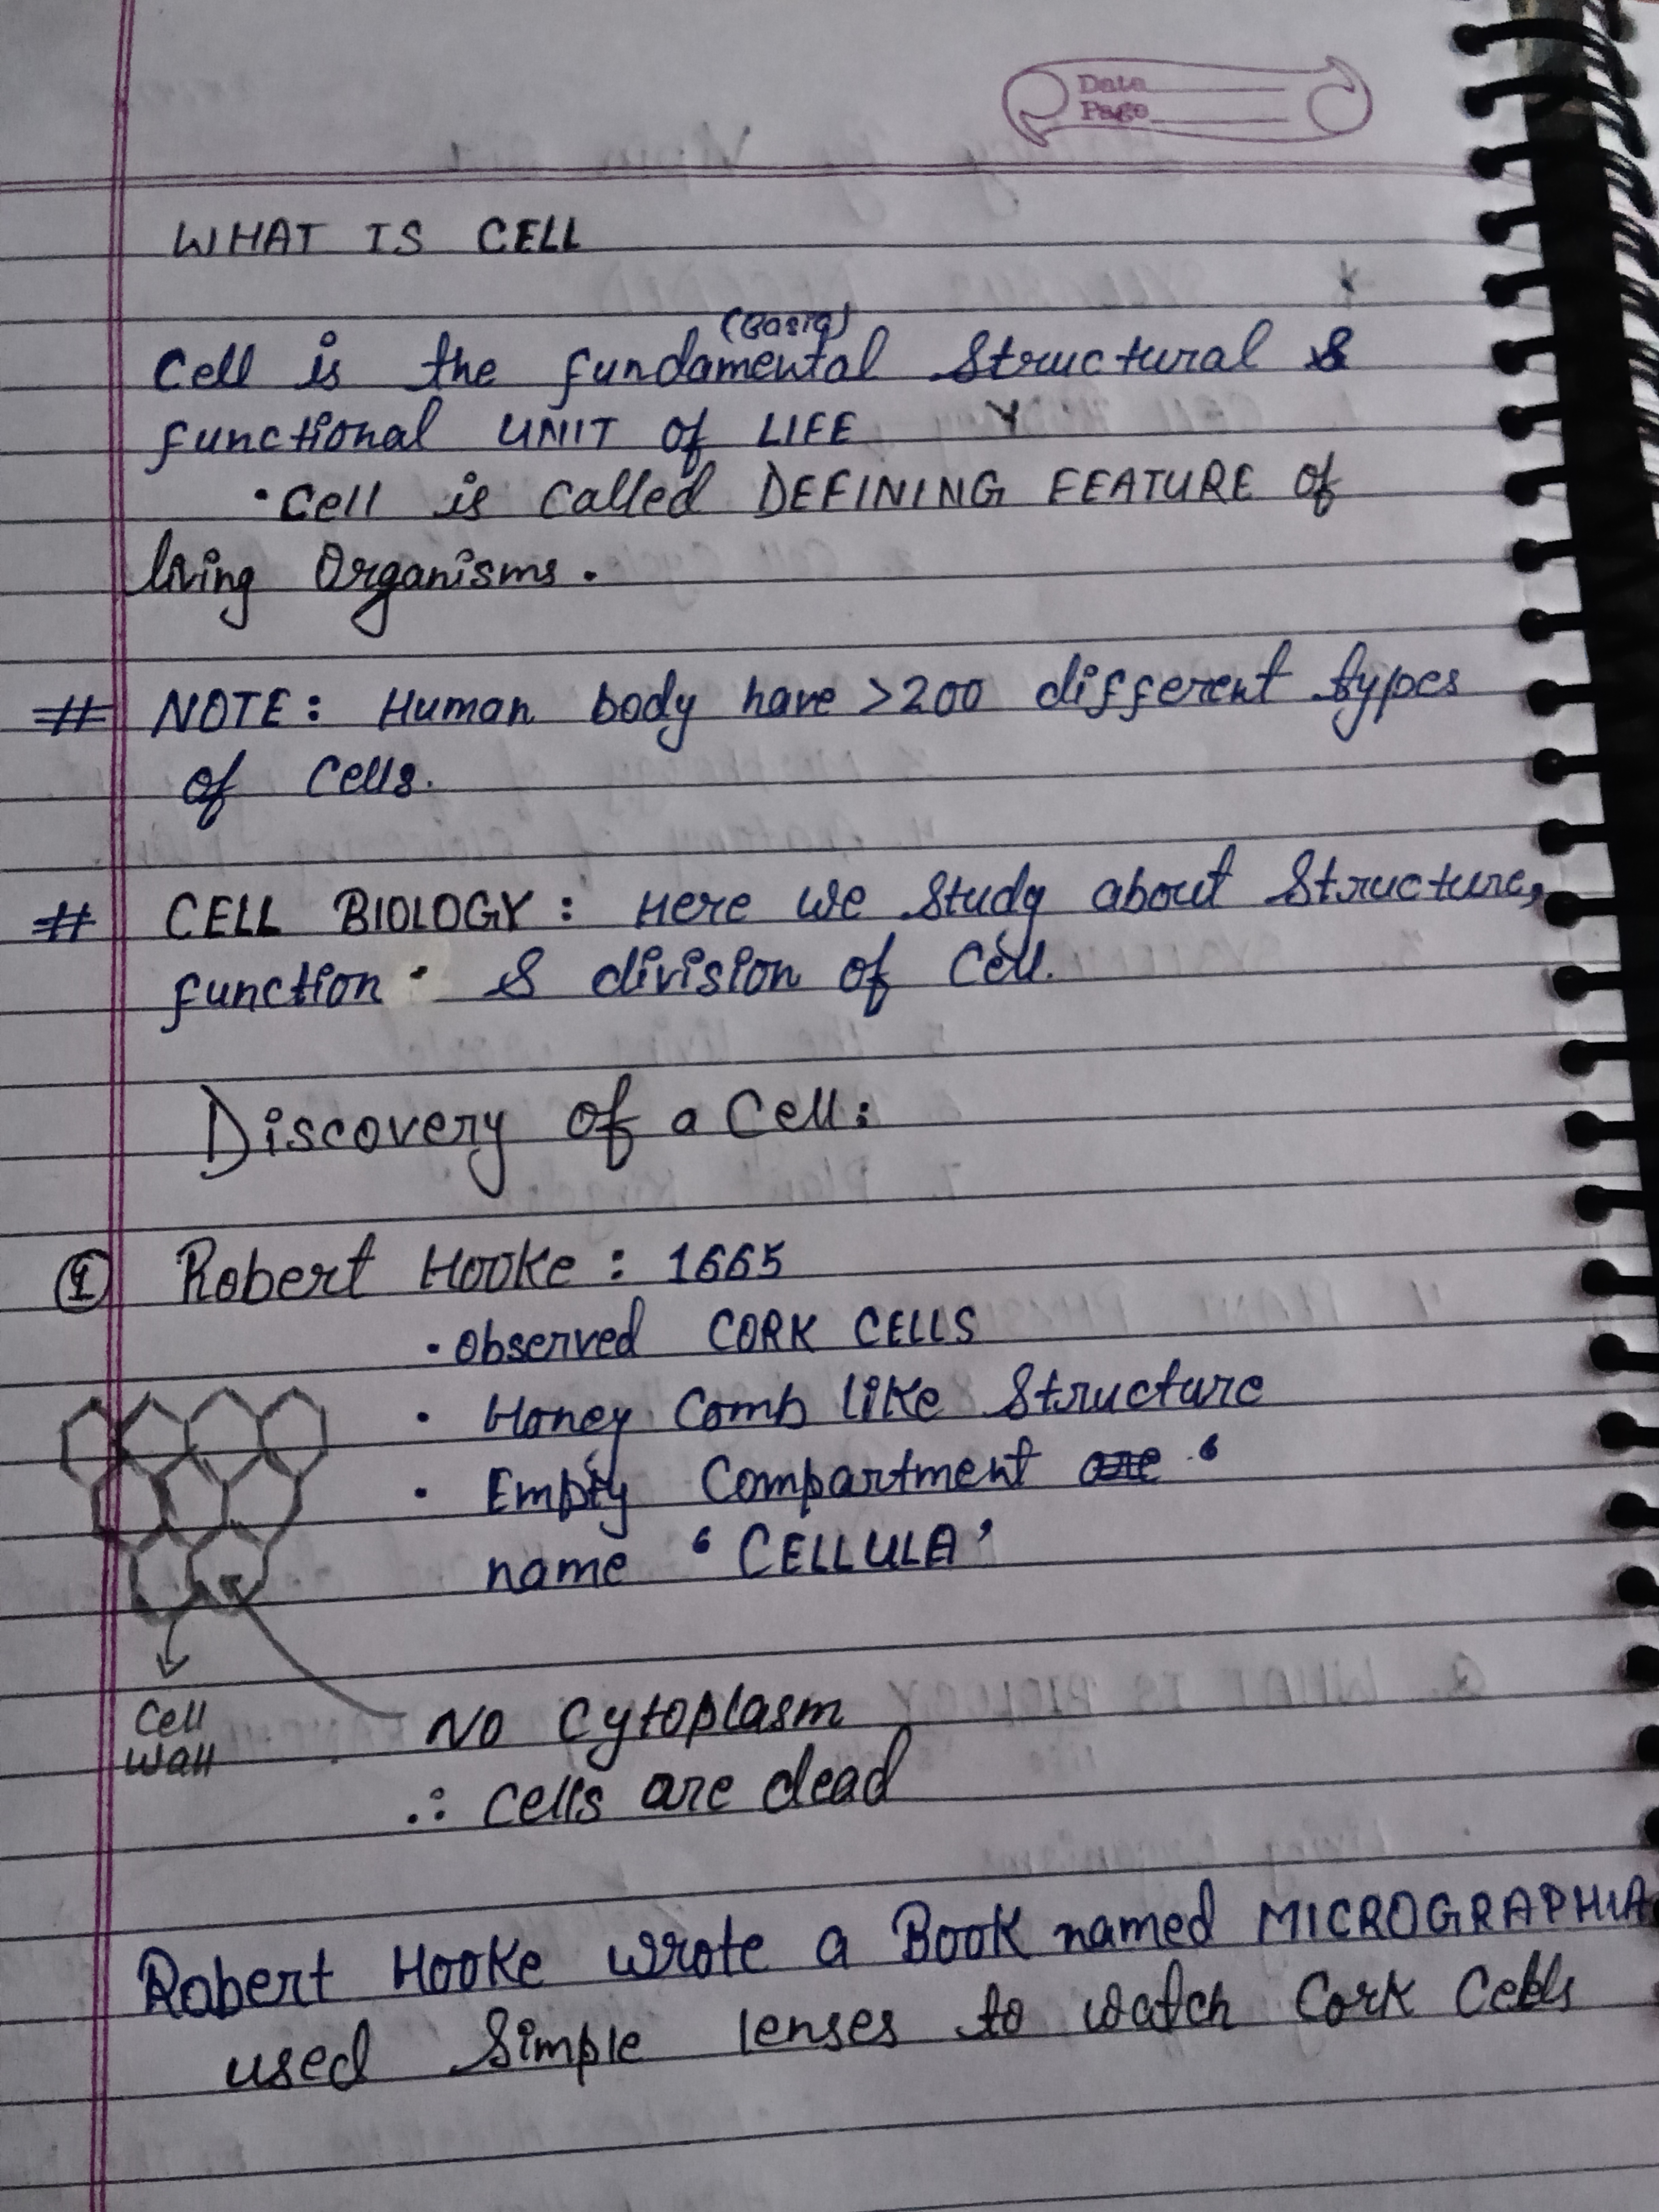 Date
Page
WHAT IS CELL
(Basic)
Cell is the fundamental Structural &
functional UNIT of LIFE
• Cell is Called DEFINING FEATURE of
living Organisms.
# NOTE: Human body have >200 different types
of Cells.
# CELL BIOLOGY: Here we Study about Structure,
function & division of Cell.
Discovery of a Cell:
① Robert Hooke: 1665
• Observed CORK CELLS
• Honey Comb like Structure
• Empty Compartment are ‘
name ‘CELLULA’
Cell
Wall
No Cytoplasm
∴ Cells are dead
Robert Hooke wrote a Book named MICROGRAPHIA
used Simple lenses to watch Cork Cells